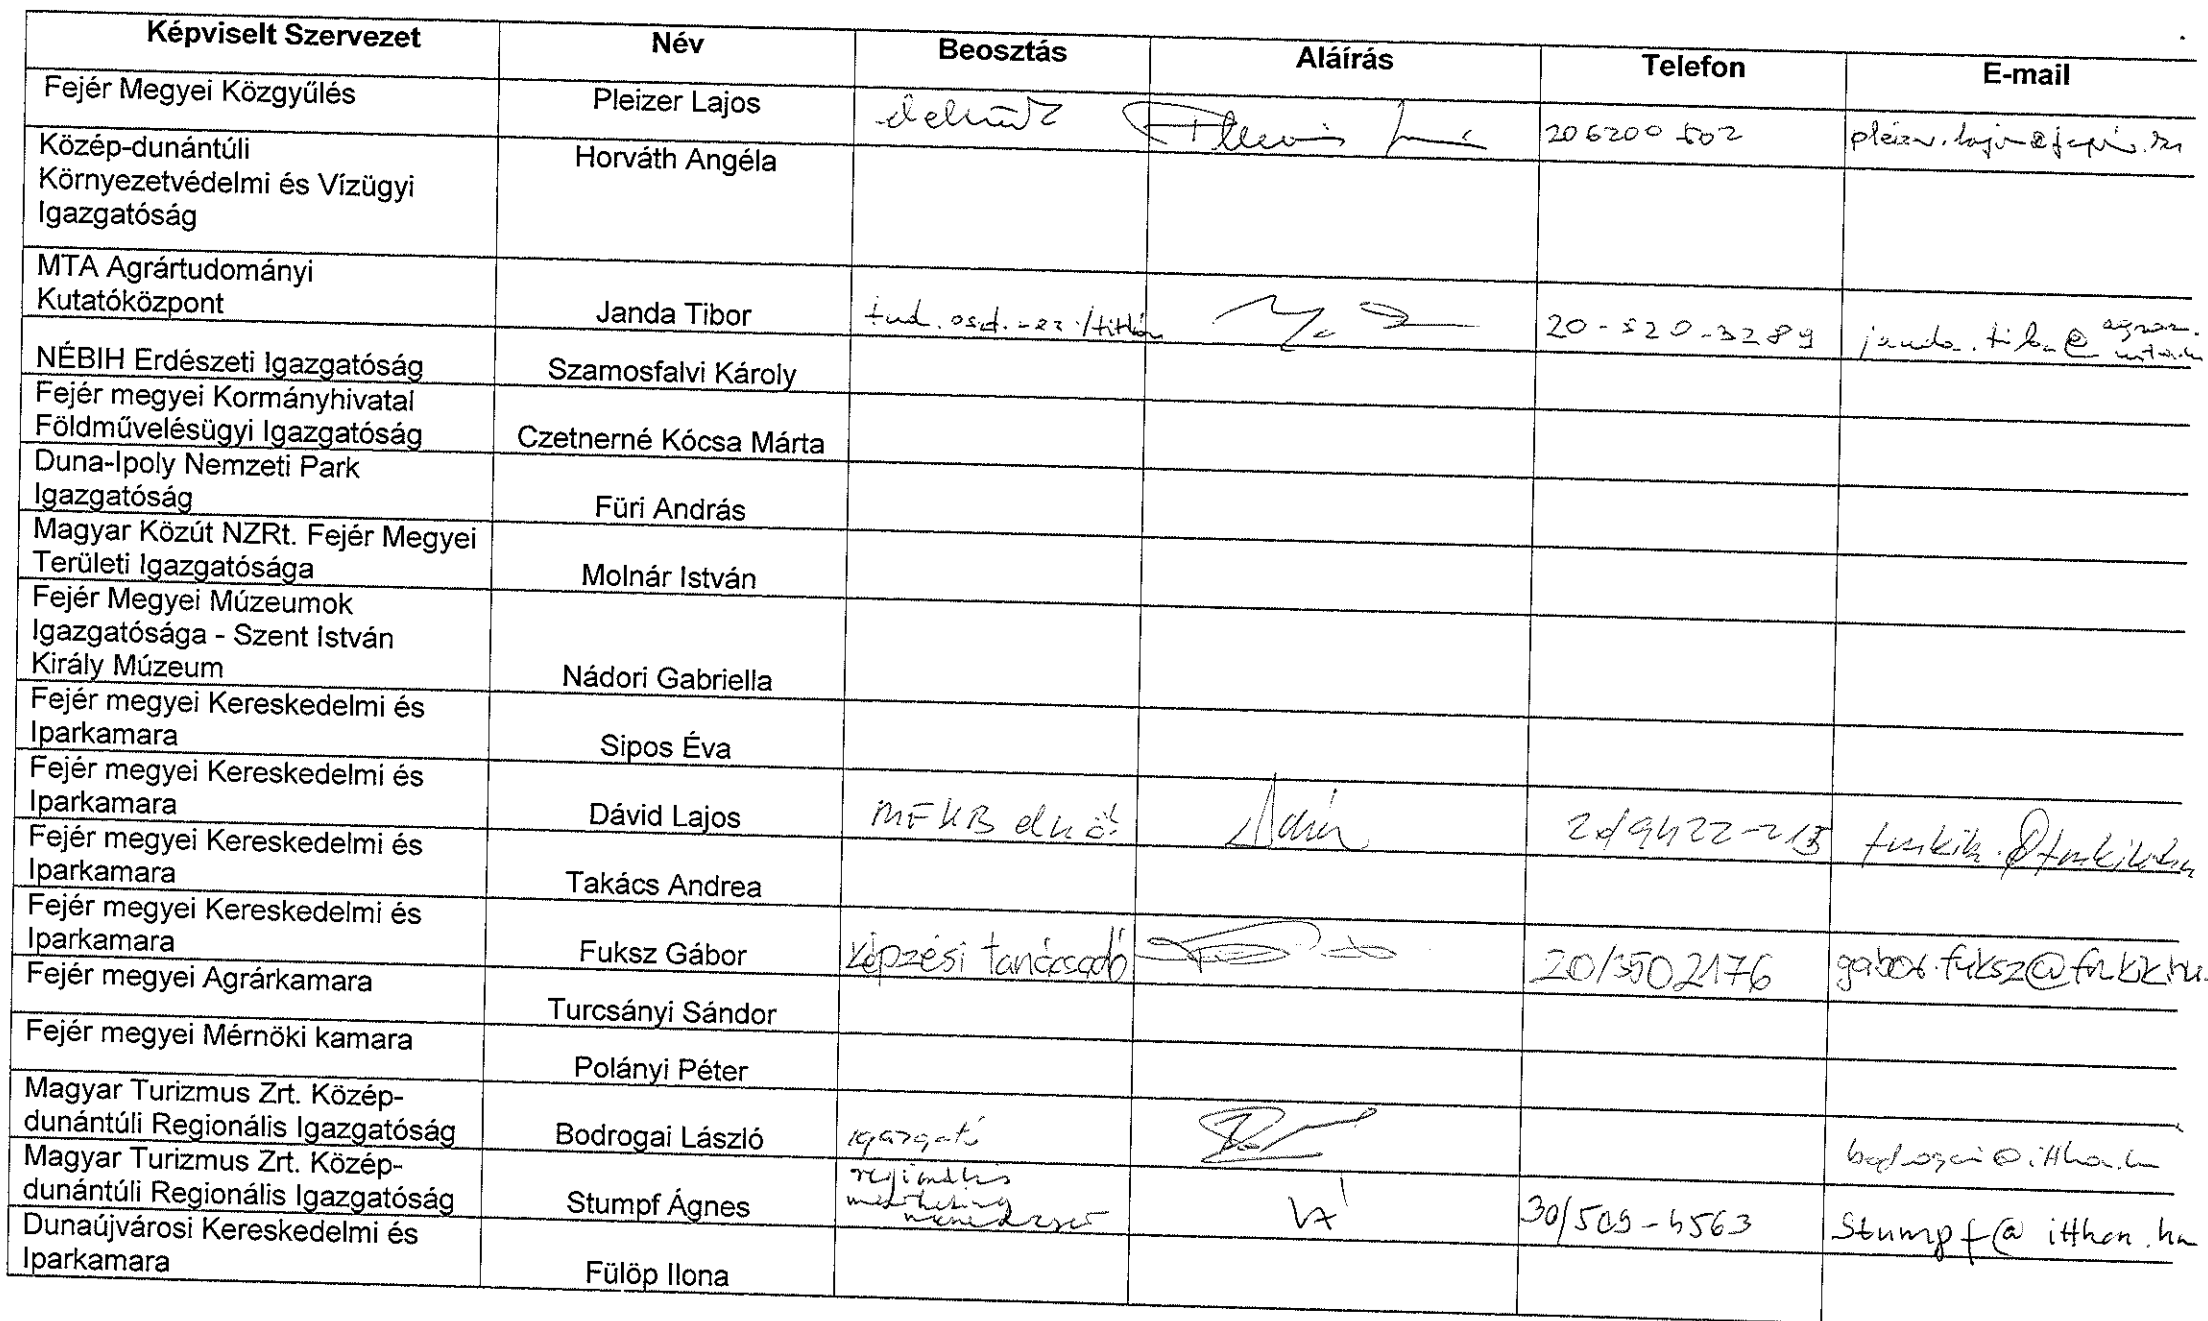 Képviselt Szervezet Név Beosztás Aláírás Telefon E-mail
Fejér Megyei Közgyűlés Pleizer Lajos
Közép-dunántúli Horváth Angéla
Környezetvédelmi és Vízügyi
Igazgatóság
MTA Agrártudományi
Kutatóközpont Janda Tibor 20-520-3289
NÉBIH Erdészeti Igazgatóság Szamosfalvi Károly
Fejér megyei Kormányhivatal
Földművelésügyi Igazgatóság Czetnerné Kócsa Márta
Duna-Ipoly Nemzeti Park
Igazgatóság Füri András
Magyar Közút NZRt. Fejér Megyei
Területi Igazgatósága Molnár István
Fejér Megyei Múzeumok
Igazgatósága - Szent István
Király Múzeum Nádori Gabriella
Fejér megyei Kereskedelmi és
Iparkamara Sipos Éva
Fejér megyei Kereskedelmi és
Iparkamara Dávid Lajos MFKB elnök
Fejér megyei Kereskedelmi és
Iparkamara Takács Andrea
Fejér megyei Kereskedelmi és
Iparkamara Fuksz Gábor képzési tanácsadó 20/3502176 gabor.fuksz@fmkik.hu
Fejér megyei Agrárkamara
Turcsányi Sándor
Fejér megyei Mérnöki kamara
Polányi Péter
Magyar Turizmus Zrt. Közép-
dunántúli Regionális Igazgatóság Bodrogai László igazgató
Magyar Turizmus Zrt. Közép- regionális
dunántúli Regionális Igazgatóság Stumpf Ágnes marketing
menedzser Stumpf@itthon.hu
Dunaújvárosi Kereskedelmi és
Iparkamara Fülöp Ilona